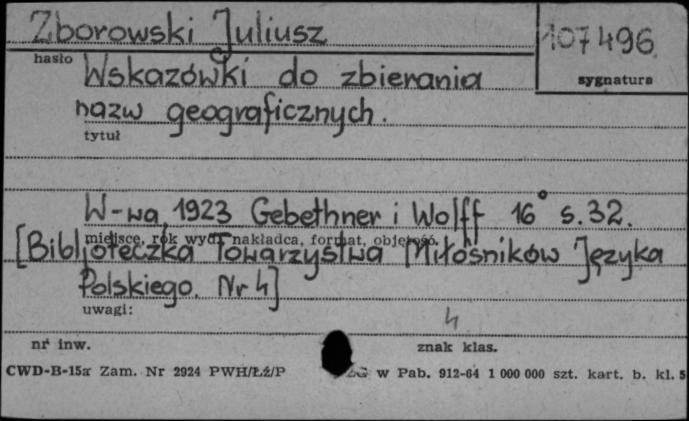 Zborowski Juliusz
107496
hasło
sygnatura
Wskazówki do zbierania
nazw geograficznych.
tytuł
W-wa 1923 Gebethner i Wolff 16° s. 32.
miejsce, rok wyd., nakładca, format, objętość.
[Biblioteczka Towarzystwa Miłośników Języka
Polskiego. Nr 4]
uwagi:
4
nr inw.
znak klas.
CWD-B-15a Zam. Nr 2924 PWH/Łź/P w Pab. 912-64 1 000 000 szt. kart. b. kl. 5